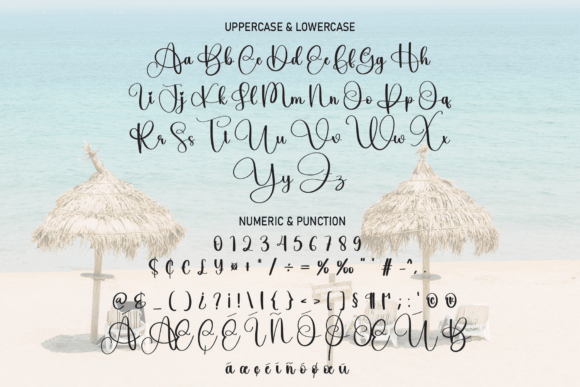 UPPERCASE & LOWERCASE
Aa Bb Cc Dd Ee Ff Gg Hh
Ii Jj Kk Ll Mm Nn Oo Pp Qq
Rr Ss Tt Uu Vv Ww Xx
Yy Zz
NUMERIC & PUNCTION
0 1 2 3 4 5 6 7 8 9
$ ¢ € £ ¥ ¤ + * / ÷ = % ‰ " ' # - ^ , .
@ & _ ( ) ¿ ? ¡ ! \ | { } < > [ ] § ¶ ; : ' © ®
À Æ Ç É Í Ñ Ó Ø Œ Ú ß
á æ ç é í ñ ó ø œ ú